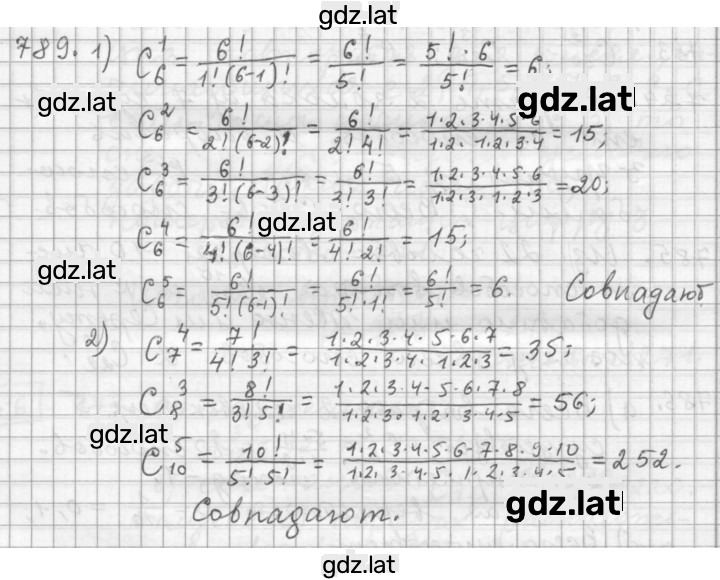 gdz.lat
789. 1) C₆¹ = 6!/1!(6-1)! = 6!/5! = 5!·6/5! = 6;
gdz.lat
gdz.lat
C₆² = 6!/2!(6-2)! = 6!/2!4! = 1·2·3·4·5·6/1·2·1·2·3·4 = 15;
C₆³ = 6!/3!(6-3)! = 6!/3!3! = 1·2·3·4·5·6/1·2·3·1·2·3 = 20;
gdz.lat
C₆⁴ = 6!/4!(6-4)! = 6!/4!2! = 15;
gdz.lat
C₆⁵ = 6!/5!(6-1)! = 6!/5!·1! = 6!/5! = 6. Совпадают.
2) C₇⁴ = 7!/4!3! = 1·2·3·4·5·6·7/1·2·3·4·1·2·3 = 35;
C₈³ = 8!/3!5! = 1·2·3·4·5·6·7·8/1·2·3·1·2·3·4·5 = 56;
gdz.lat
C₁₀⁵ = 10!/5!5! = 1·2·3·4·5·6·7·8·9·10/1·2·3·4·5·1·2·3·4·5 = 252.
gdz.lat
Совпадают.
gdz.lat